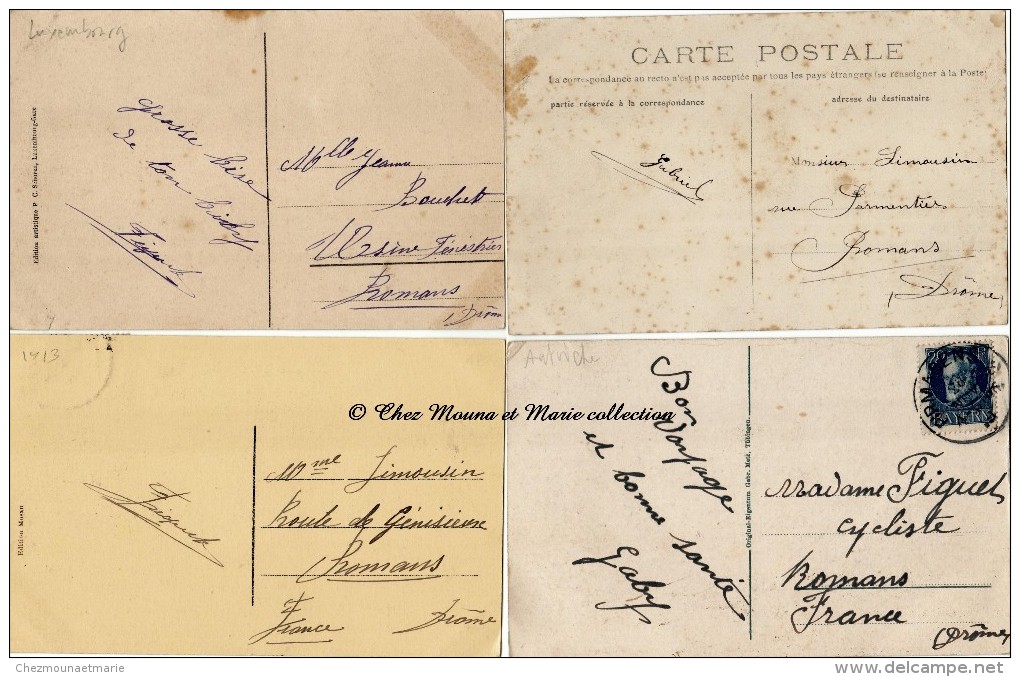 Luxembourg
Edition artistique P. C. Schoren, Luxembourg-Gare
Grosse bise
de ton
Figuet
Mlle Jeanne
Bouchet
Usine Fénestrier
Romans
(Drôme
CARTE POSTALE
La correspondance au recto n'est pas acceptée par tous les pays étrangers (se renseigner à la Poste)
partie réservée à la correspondance
adresse du destinataire
Gabriel
Monsieur Limousin
rue Parmentier
Romans
(Drôme)
1913
Edition Mosan
Figuet
Mme Limousin
Route de Génisieux
Romans
France
Drôme
© Chez Mouna et Marie collection
Autriche
Bon Voyage
et bonne santé
Gaby
Original-Eigentum Gebr. Metz, Tübingen.
20
BAYERN
Madame Figuet
cycliste
Romans
France
(Drôme)
Chezmounaetmarie
delcampe.net